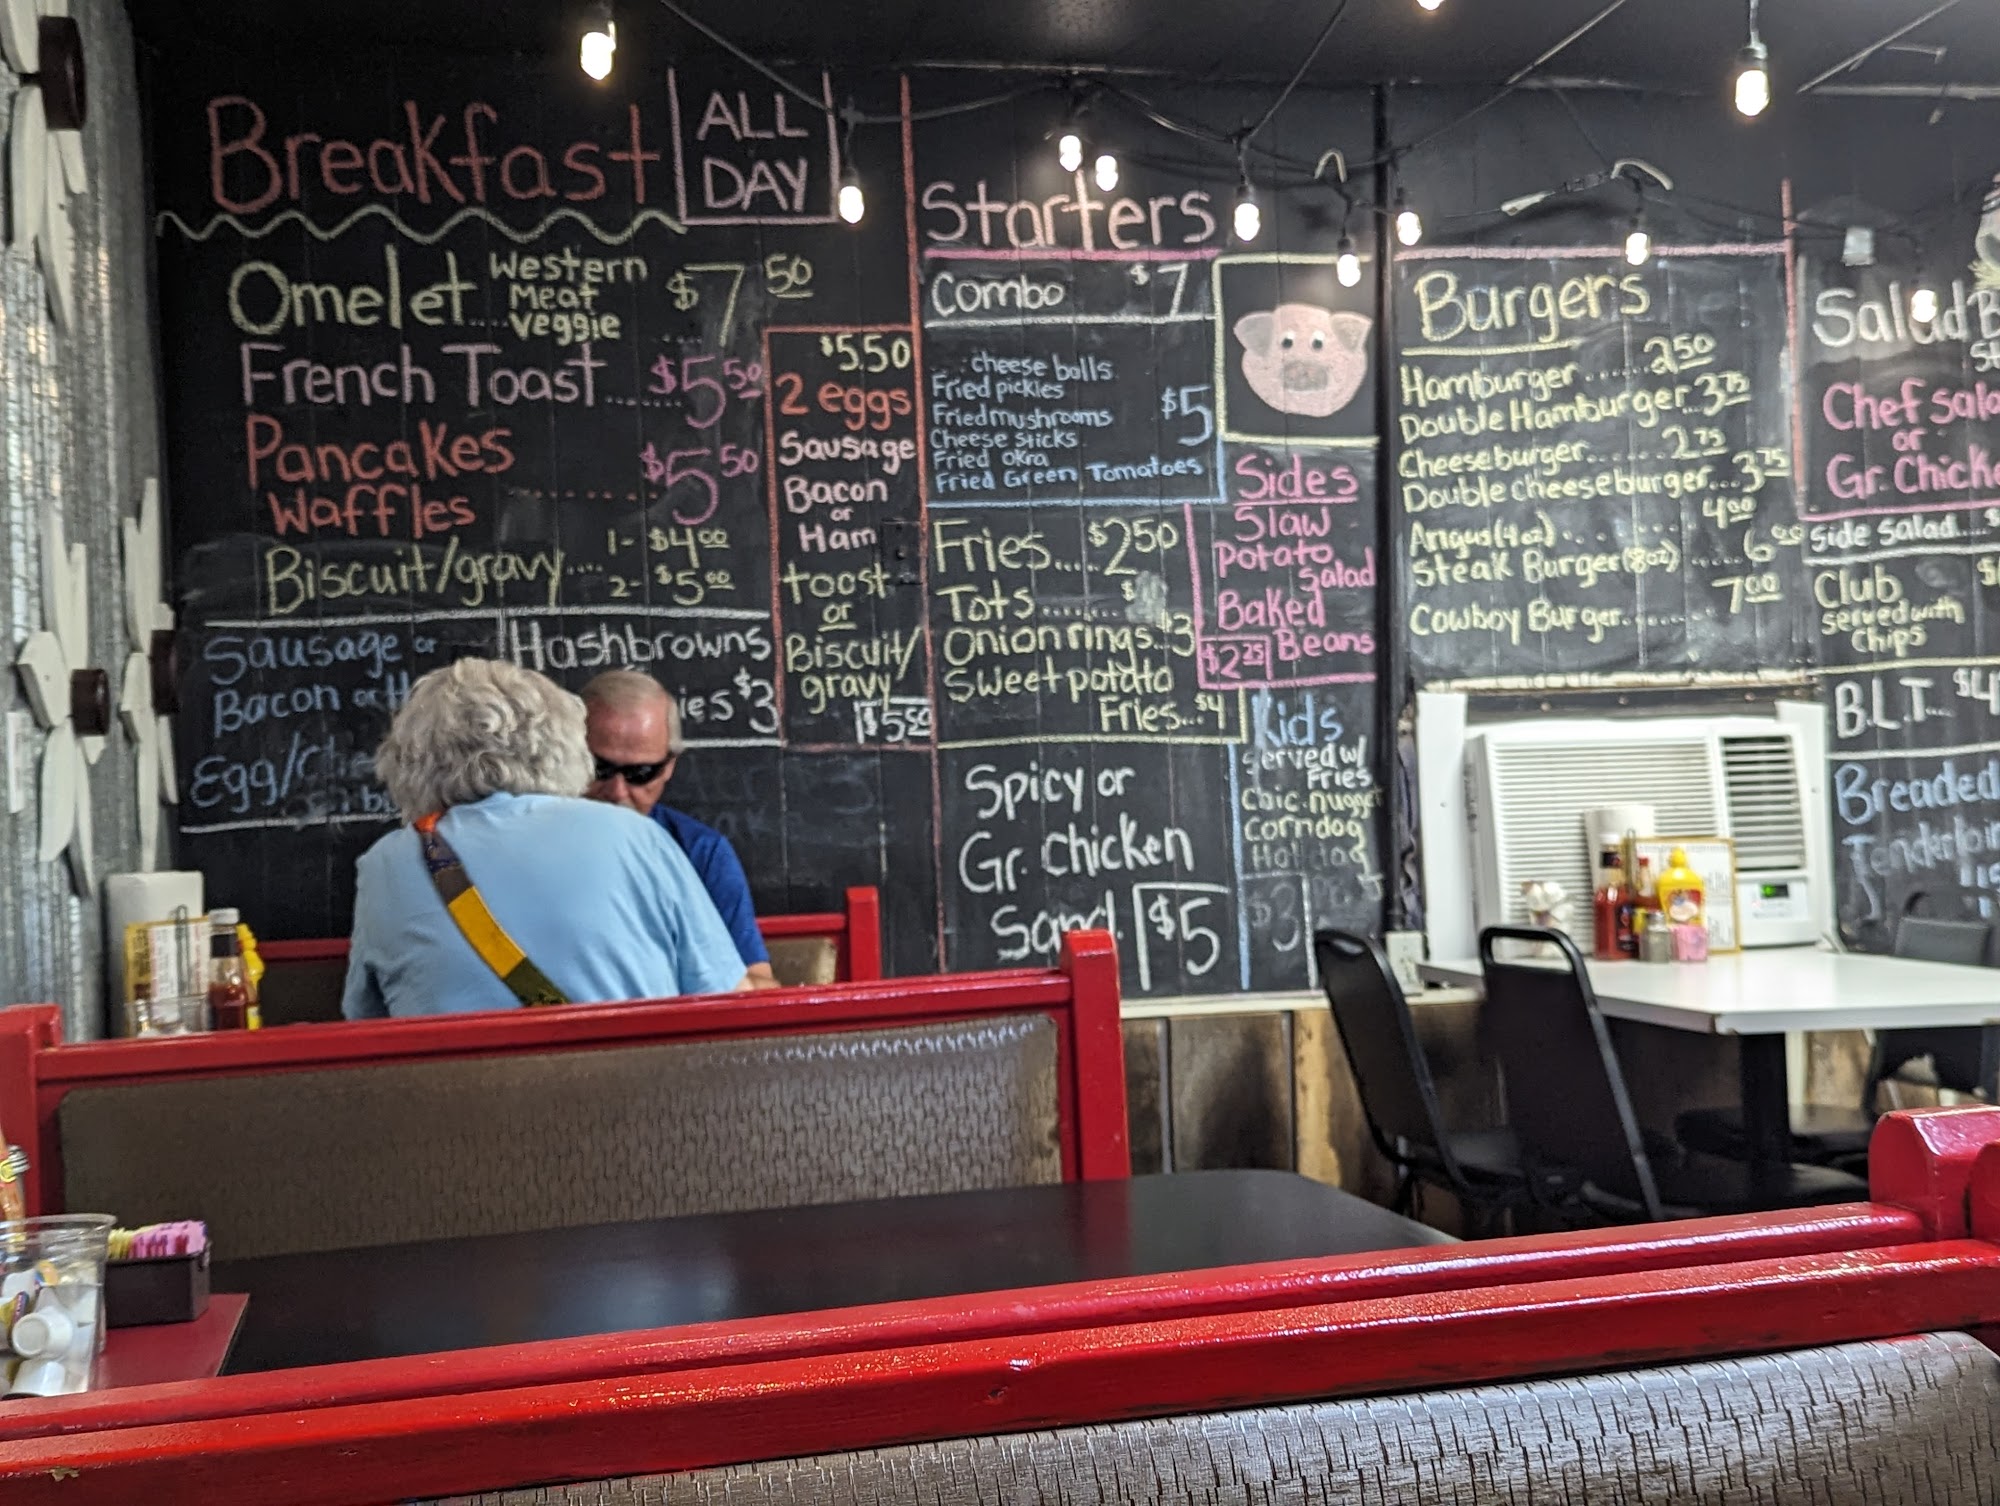 Breakfast
ALL
DAY
Omelet Western $7 50
Meat
Veggie
French Toast ....... $5 50
Pancakes
Waffles ........ $5 50
Biscuit/gravy.... 1- $4 00
2- $5 00
Sausage or
Bacon or
Egg/Che
Hashbrowns
ies $3
$5.50
2 eggs
Sausage
Bacon
or
Ham
toast
or
Biscuit/
gravy
$5 50
Starters
Combo $7
cheese balls
Fried pickles
Fried mushrooms $5
Cheese sticks
Fried okra
Fried Green Tomatoes
Fries..... $2 50
Tots....... $
Onion rings... $3
Sweet potato
Fries... $4
Spicy or
Gr. Chicken
Sand. $5
Sides
Slaw
Potato
Salad
Baked
Beans
$2 25
Kids
Served w/
Fries
Chic. nugget
Corndog
Hotdog
$3
Burgers
Hamburger ...... 2 50
Double Hamburger... 3 75
Cheeseburger....... 2 75
Double cheeseburger... 3 75
Angus (4oz) ....... 4 00
Steak Burger (8oz) ...... 6 00
Cowboy Burger....... 7 00
Salad
Chef Sala
or
Gr. Chick
Side Salad....
Club
served with
Chips
B.L.T... $4
Breaded
Tenderloin